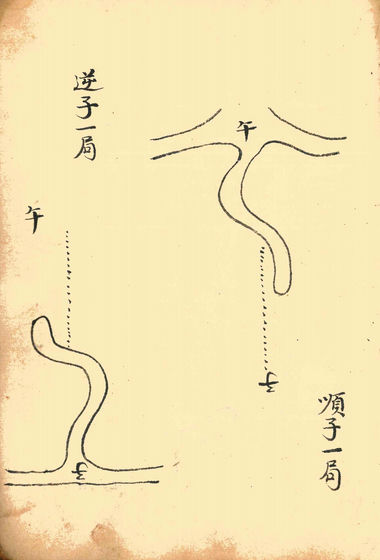 順子一局
午
子
逆子一局
午
子